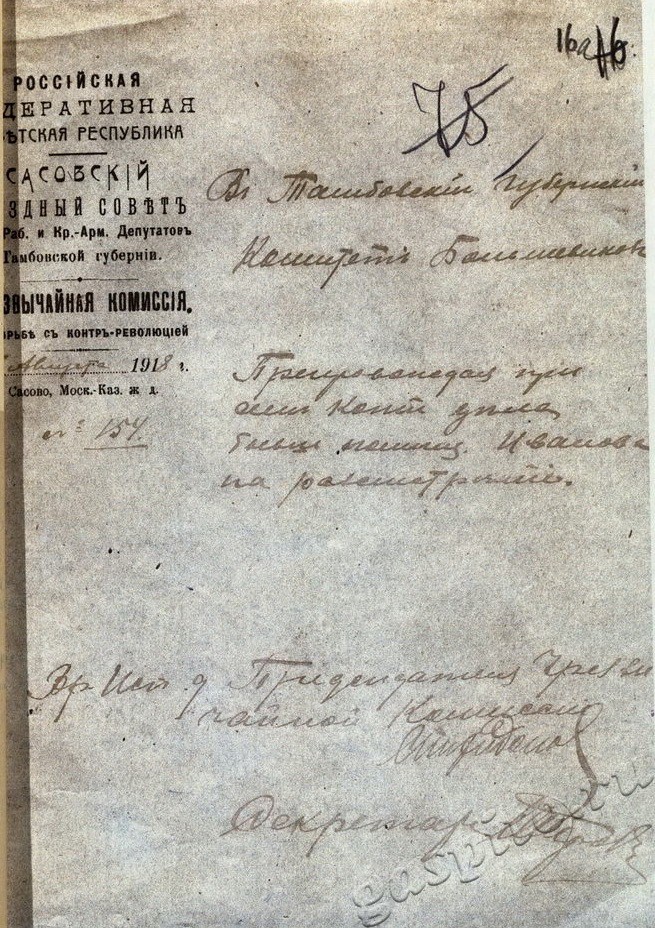 16а 16
75
РОССІЙСКАЯ
ДЕРАТИВНАЯ
ѢТСКАЯ РЕСПУБЛИКА
САСОВСКІЙ
ЗДНЫЙ СОВѢТЪ
Раб. и Кр.-Арм. Депутатовъ
Тамбовской губерніи.
ЗВЫЧАЙНАЯ КОМИССІЯ.
ОРЬБѢ СЪ КОНТРЪ-РЕВОЛЮЦІЕЙ
Августа 1918 г.
Сасово, Моск.-Каз. ж д.
№ 154
Въ Тамбовскій Губернскій
Комитетъ Большевиковъ
Препровождая при
семъ копт дѣла
помещ. Иванова
на
Вр Исп д Председателя Чрезвы
чайной Комиссии
Секретарь
gaspito.ru